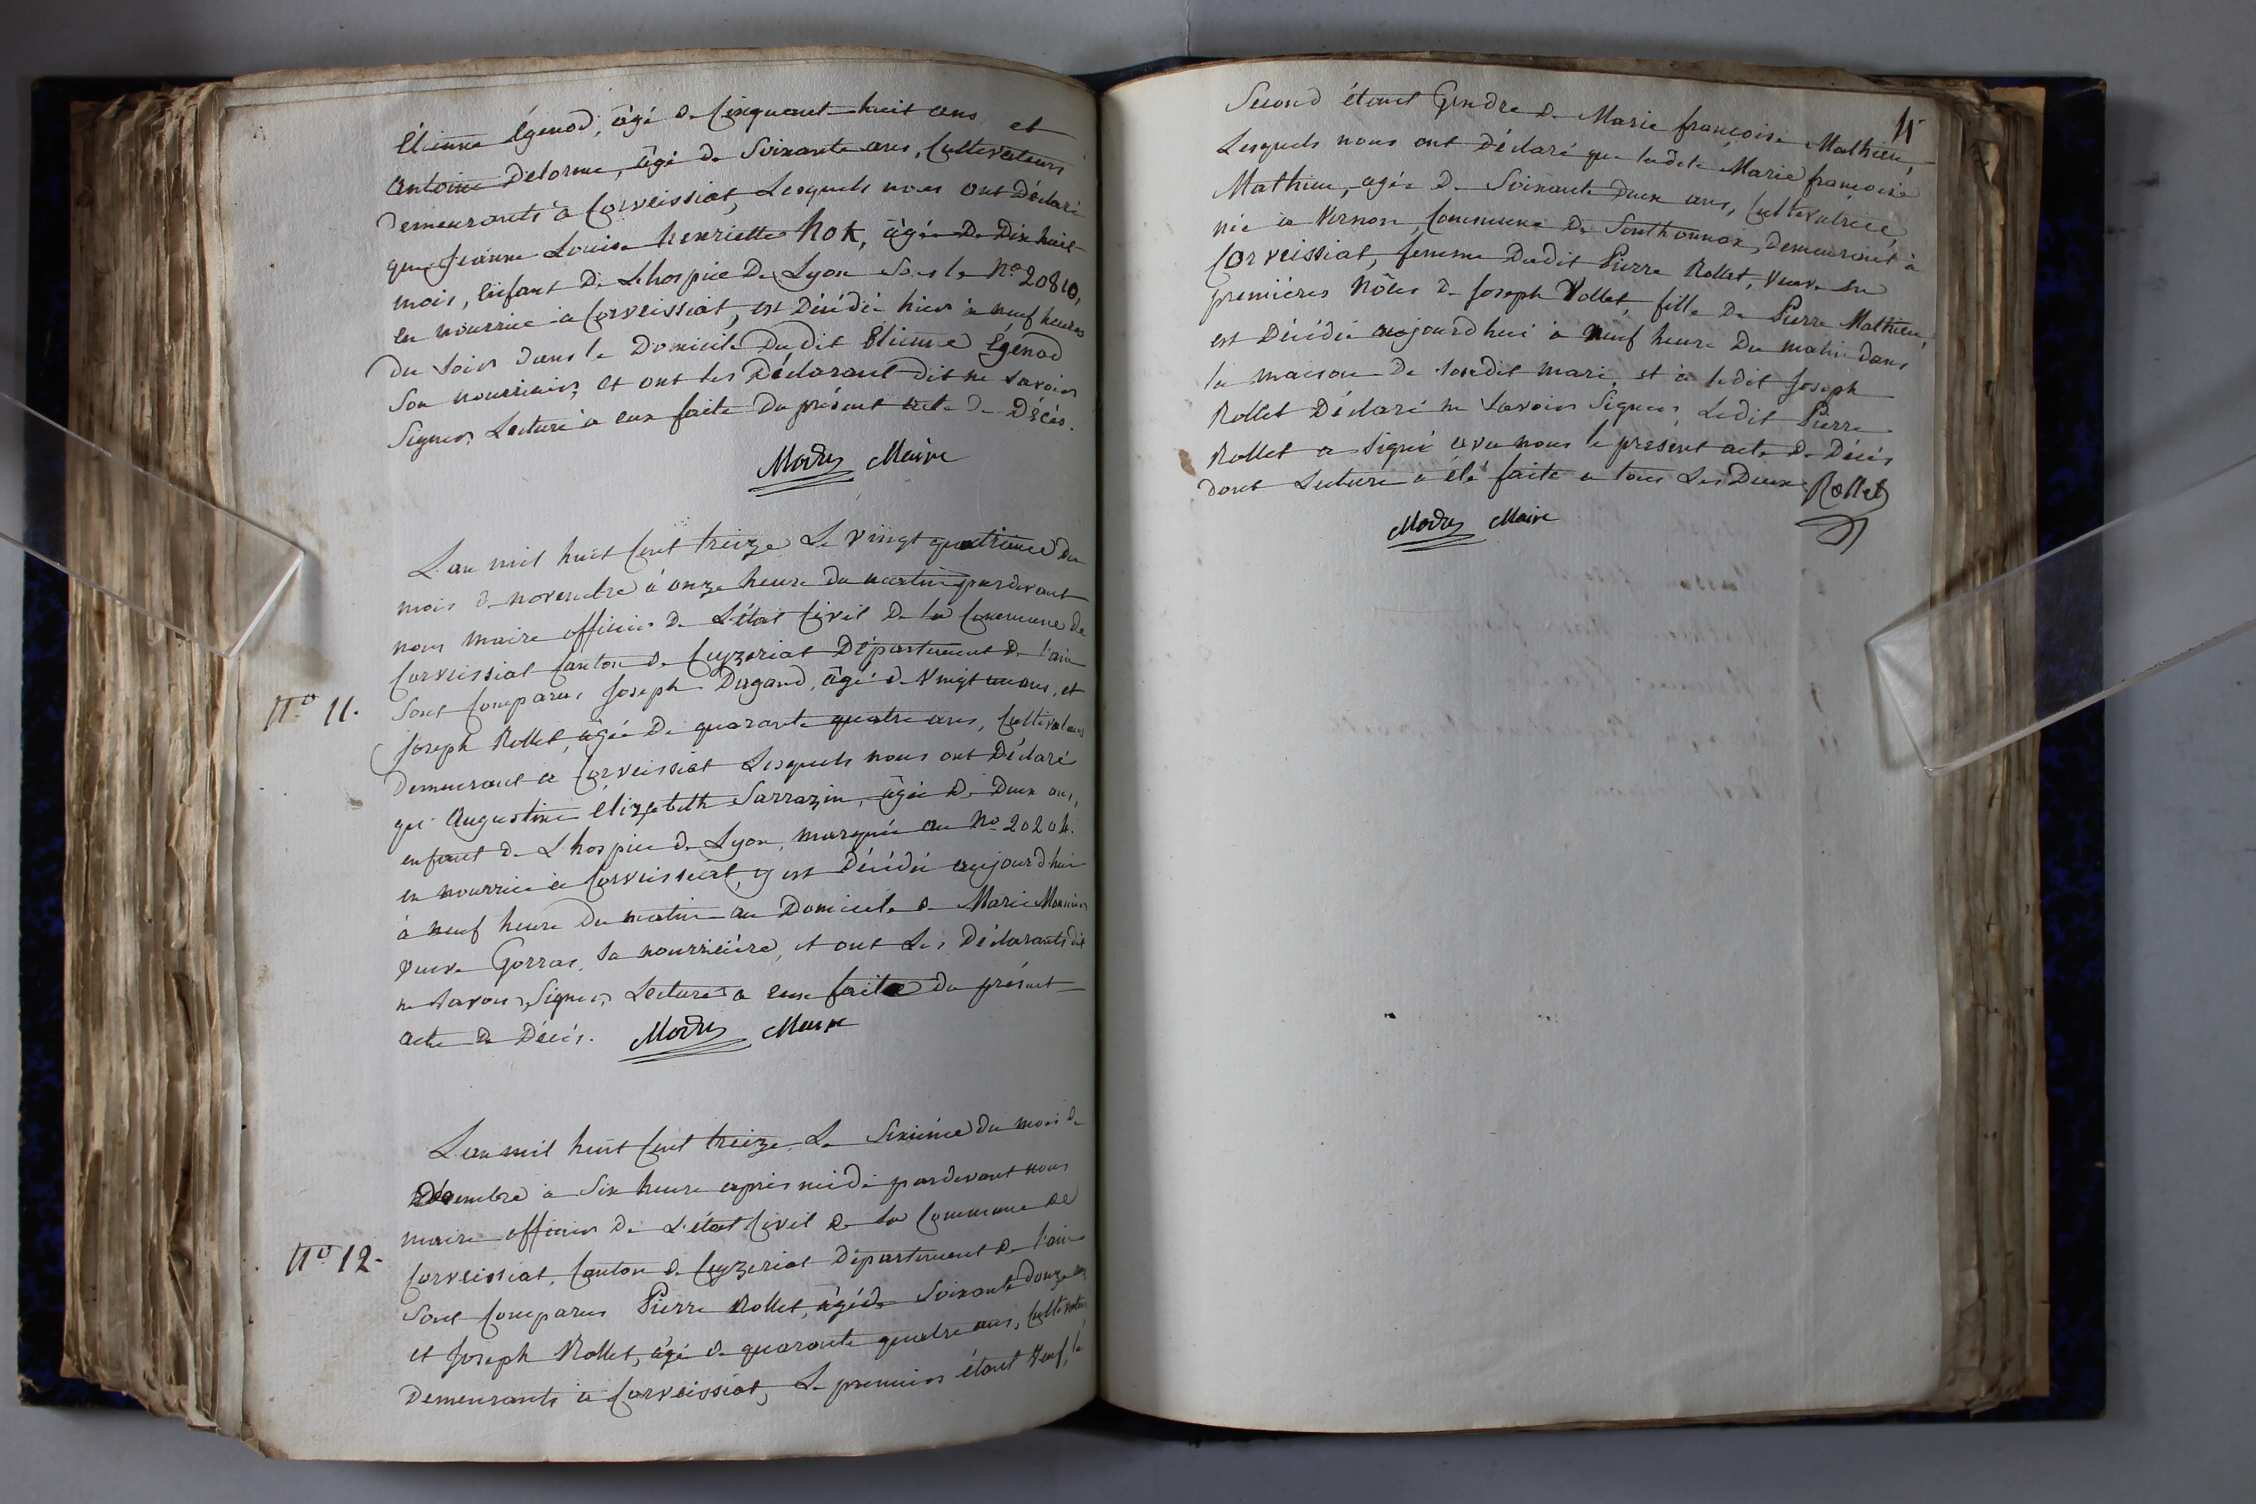 Etienne Egenod, âgé de Cinquante huit ans et
Antoine Delorme, âgé de Soixante ans, Cultivateurs
Demeurants à Corveissiat, Lesquels nous ont Déclaré
que Jeanne Louise henriette Rok, âgée De Dix huit
mois, Enfant De L'hospice De Lyon Sous le No. 20810,
en nourrice à Corveissiat, est Décédée hier à neuf heures
Du Soir dans le Domicile Dudit Etienne Egenod
Son nourricier, et ont les Déclarant dit ne Savoir
Signer, Lecture à eux faite Du présent acte De Décès.
Maire
L'an mil huit Cent treize Le vingt quatrième Du
mois de novembre à onze heure du matin pardevant
nous Maire officier De L'état Civil De la Commune de
Corveissiat Canton de Ceyzeriat Département De l'ain
Sont Comparus Joseph Dugand, âgé de Vingt un ans, et
No 11.
Joseph Rollet, âgée De quarante quatre ans, Cultivateurs
Demeurant à Corveissiat Lesquels nous ont Déclaré
que Augustine Elizabeth Sarrazin, âgée de Deux ans,
enfant de L'hospice de Lyon, marquée au No. 20204.
en nourrice à Corveissiat, y est Décédée aujourd'hui
à neuf heure Du matin au Domicile de Marie
Veuve Gorras, Sa nourricière, et ont Les Déclarants dit
ne Savoir Signer, Lecture à eux faite du présent
acte de Décès. Maire
L'an mil huit Cent treize Le Sixième du mois de
Décembre à Six heure après midi pardevant nous
maire officier De L'état Civil de la Commune de
No 12.
Corveissiat, Canton de Ceyzeriat Département De l'ain
Sont Comparus Pierre Rollet, âgé de Soixante Douze ans
et Joseph Rollet, âgé de quarante quatre ans, Cultivateurs
Demeurants à Corveissiat, Le premier étant Veuf, le
Second étant Gendre de Marie françoise Mathieu,
Lesquels nous ont Déclaré que ladite Marie françoise
Mathieu, agée de Soixante Deux ans, Cultivatrice,
née à Vernon, Commune De Sonthonnax, Demeurant à
Corveissiat, femme Dudit Pierre Rollet, Veuve en
premières Nôces de Joseph Vollet, fille De Pierre Mathieu,
est Décédée aujourd'hui à neuf heure Du matin dans
la maison De Son dit mari, et a ledit Joseph
Rollet Déclaré ne Savoir Signer, Ledit Pierre
Rollet a Signé avec nous le présent acte de Décès
dont Lecture a été faite à tous Les Deux Rollet
Maire